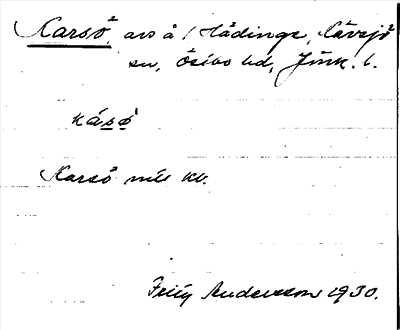 Karsö, avs å Hådinge, Lävsjö
sn, Östbo hd, Jönk. l.
kásö
Karsö mse kb.
Fritz Andersson 1930.